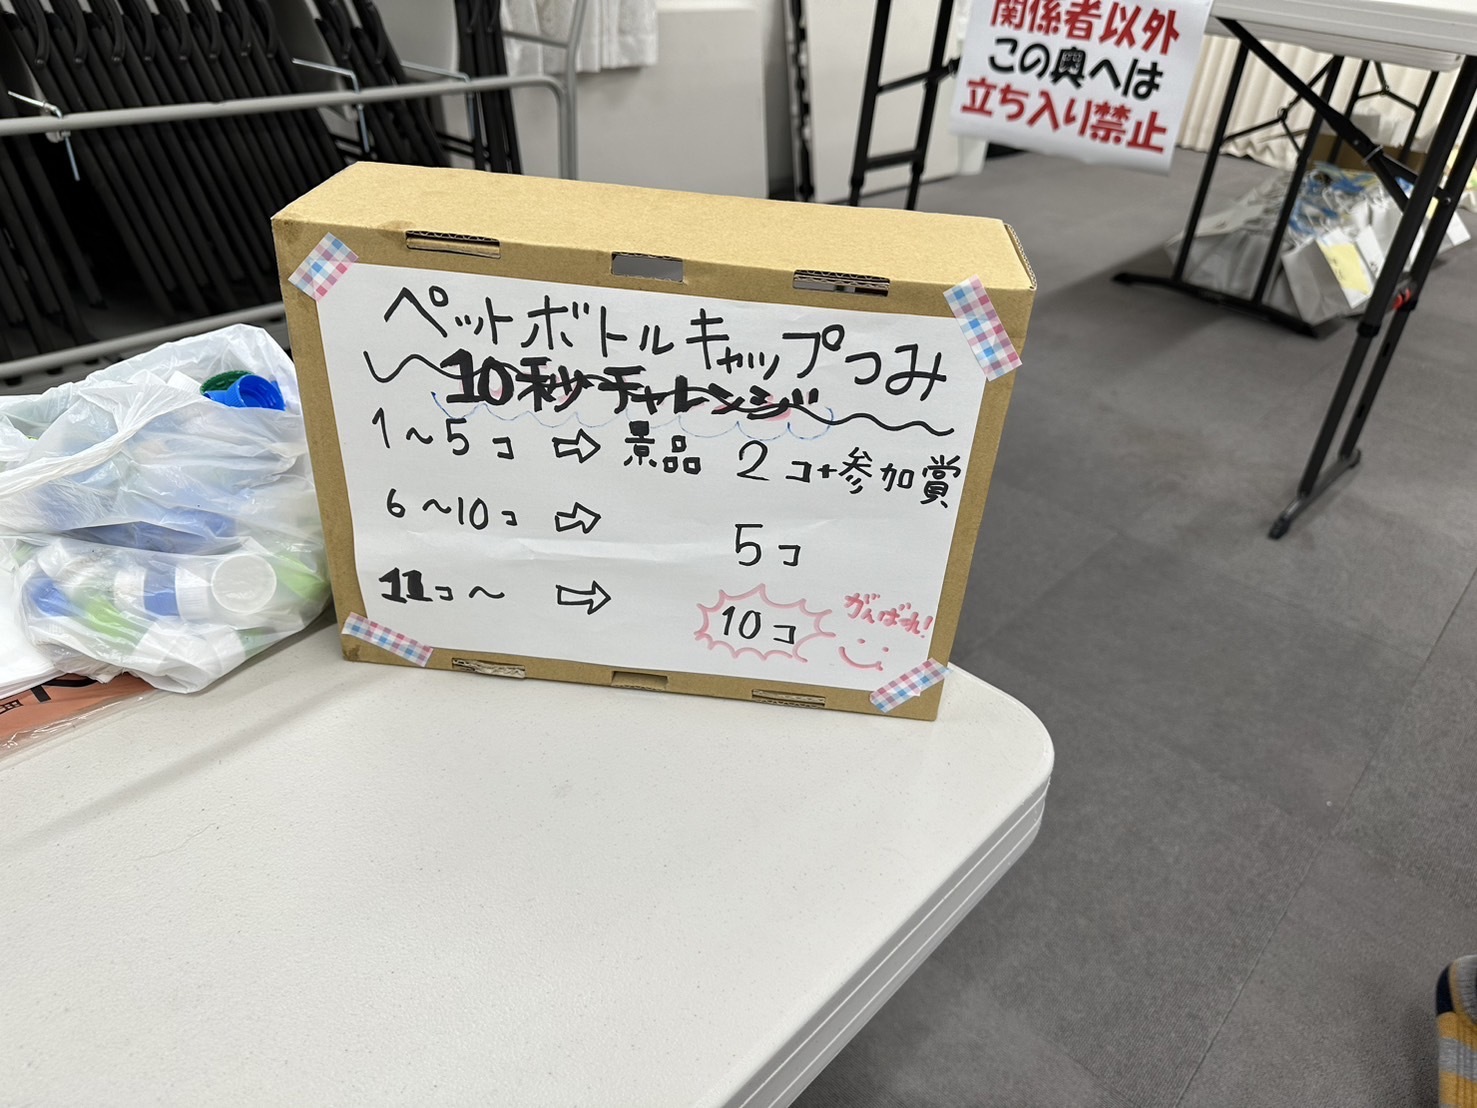 関係者以外
この奥へは
立ち入り禁止
ペットボトルキャップつみ
10秒チャレンジ
1～5コ ⇨ 景品 2コ+参加賞
6～10コ ⇨ 5コ
11コ～ ⇨ 10コ がんばれ!